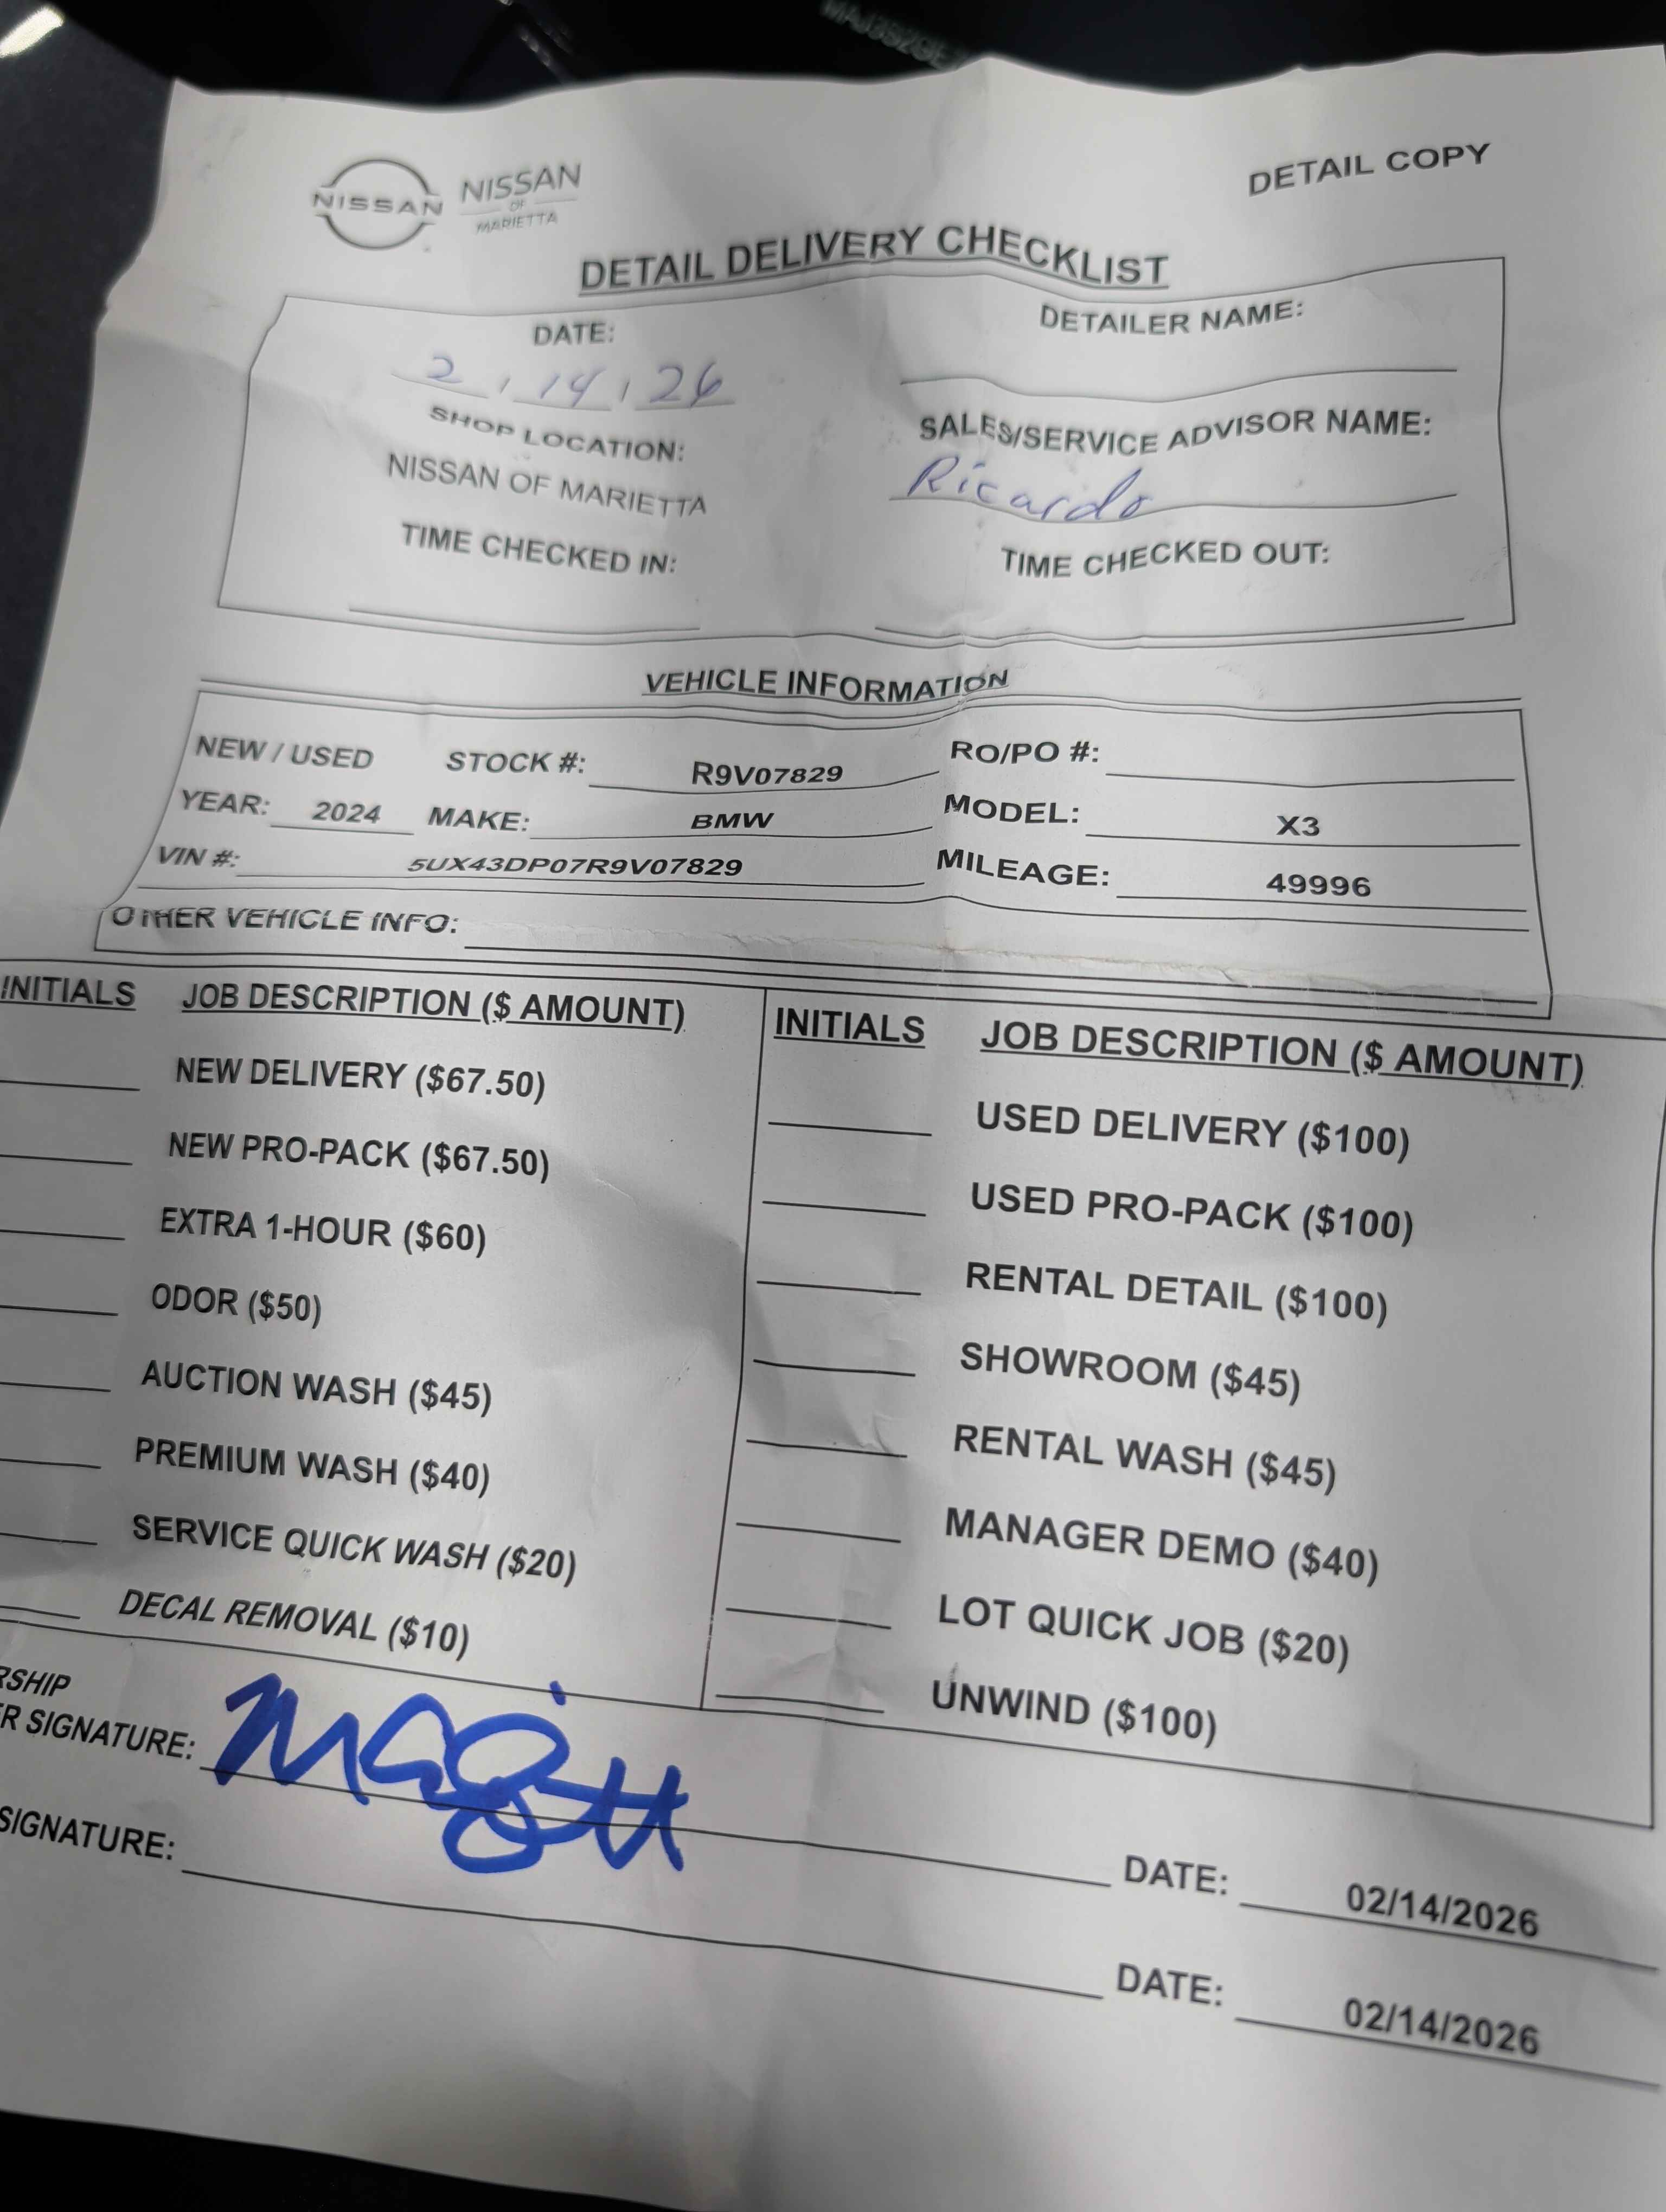 DETAIL COPY
NISSAN
NISSAN
OF
MARIETTA
DETAIL DELIVERY CHECKLIST
DATE:
2 / 14 / 26
DETAILER NAME:
SHOP LOCATION:
NISSAN OF MARIETTA
SALES/SERVICE ADVISOR NAME:
Ricardo
TIME CHECKED IN:
TIME CHECKED OUT:
VEHICLE INFORMATION
NEW / USED STOCK #: R9V07829 RO/PO #:
YEAR: 2024 MAKE: BMW MODEL: X3
VIN #: 5UX43DP07R9V07829 MILEAGE: 49996
OTHER VEHICLE INFO:
INITIALS JOB DESCRIPTION ($ AMOUNT)
NEW DELIVERY ($67.50)
NEW PRO-PACK ($67.50)
EXTRA 1-HOUR ($60)
ODOR ($50)
AUCTION WASH ($45)
PREMIUM WASH ($40)
SERVICE QUICK WASH ($20)
DECAL REMOVAL ($10)
INITIALS JOB DESCRIPTION ($ AMOUNT)
USED DELIVERY ($100)
USED PRO-PACK ($100)
RENTAL DETAIL ($100)
SHOWROOM ($45)
RENTAL WASH ($45)
MANAGER DEMO ($40)
LOT QUICK JOB ($20)
UNWIND ($100)
RSHIP
R SIGNATURE:
DATE: 02/14/2026
SIGNATURE:
DATE: 02/14/2026